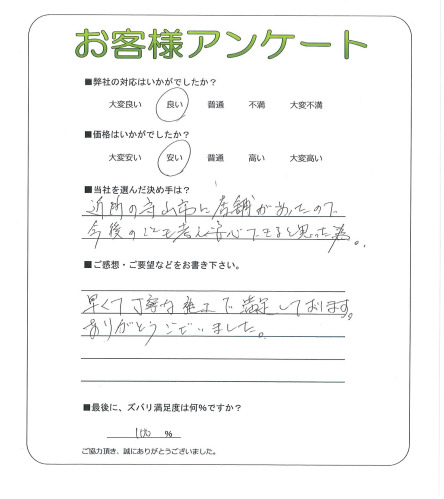 お客様アンケート
■弊社の対応はいかがでしたか？
大変良い 良い 普通 不満 大変不満
■価格はいかがでしたか？
大変安い 安い 普通 高い 大変高い
■当社を選んだ決め手は？
近所の守山市に店舗があったので
今後の事も考え安心できると思った為。
■ご感想・ご要望などをお書き下さい。
早くて丁寧な施工で満足しております。
ありがとうございました。
■最後に、ズバリ満足度は何%ですか？
100 %
ご協力頂き、誠にありがとうございました。